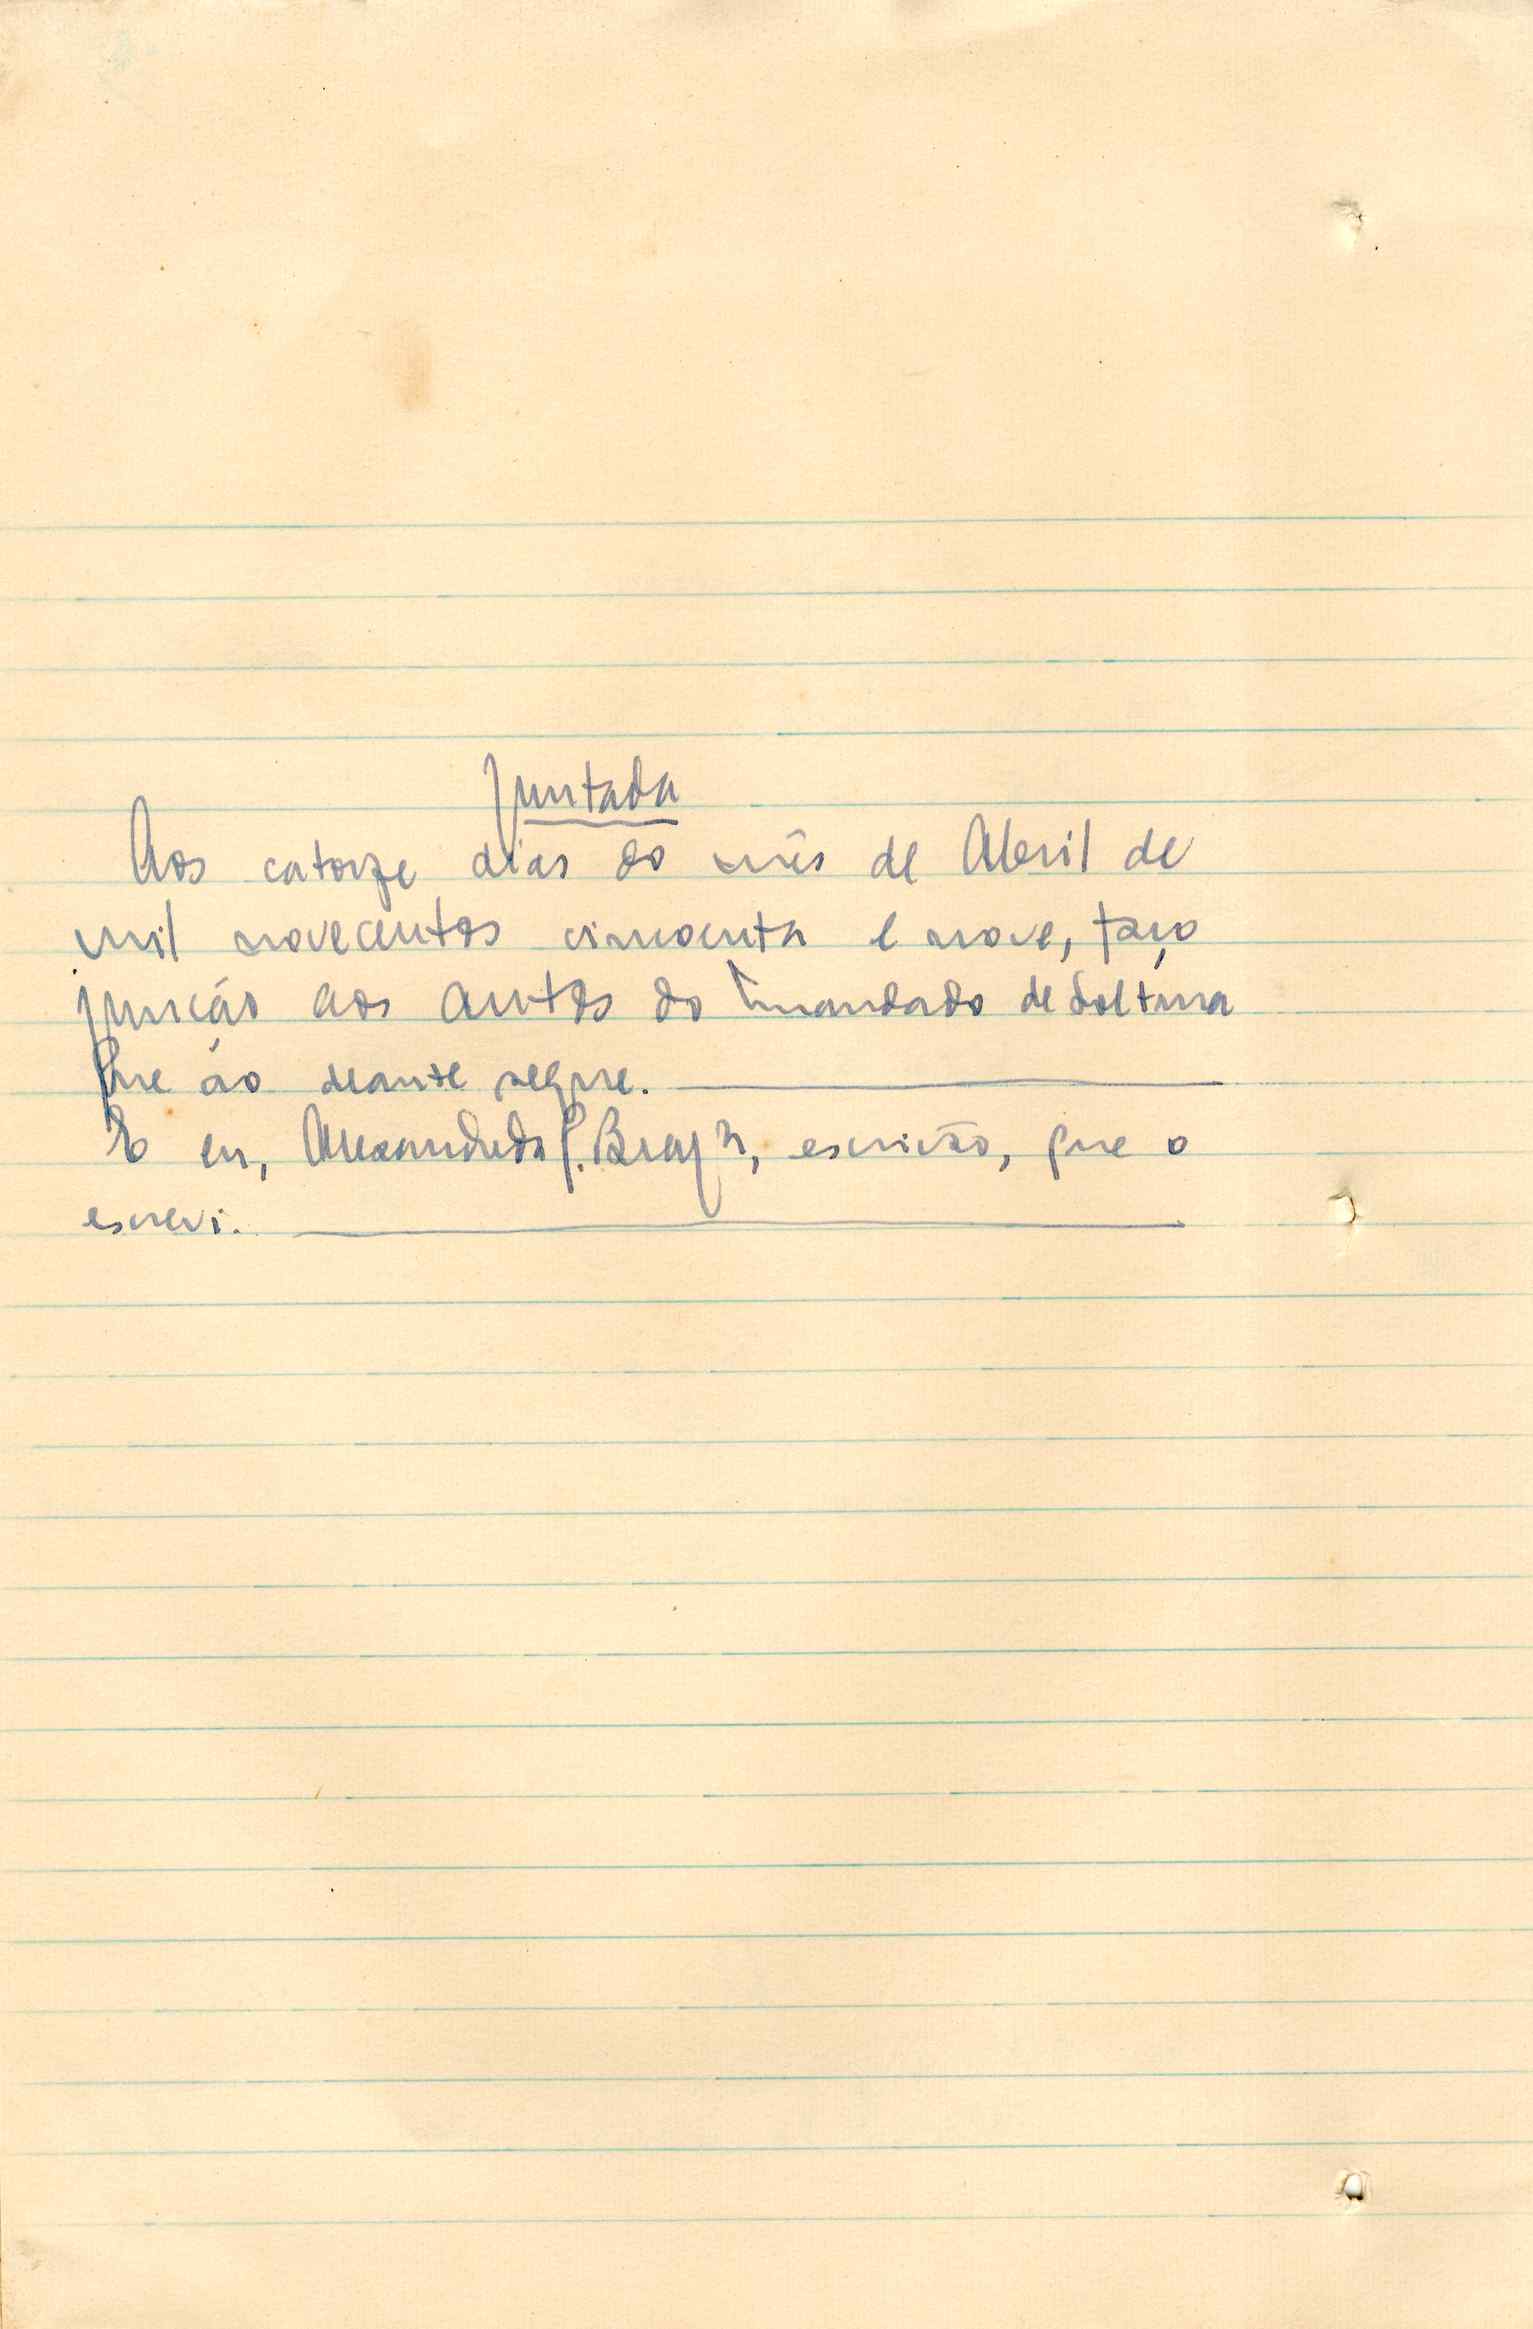 Juntada
Aos catorze dias do mês de Abril de
mil novecentos cincoenta e nove, faço
junção aos autos do mandado de Soltura
que áo deante segue.
E eu, Alexandre da S. Braga, escrivão, que o
escrevi.